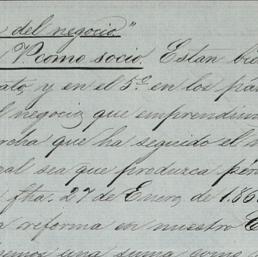 del negocio"
V como socio. Estan bie
ato, y en el 5º en los
l negocio que emprendim
rcha que ha seguido el
al sea que produzca pér
fha. 27 de Enero, de 186
a reforma en nuestro C
una suma como